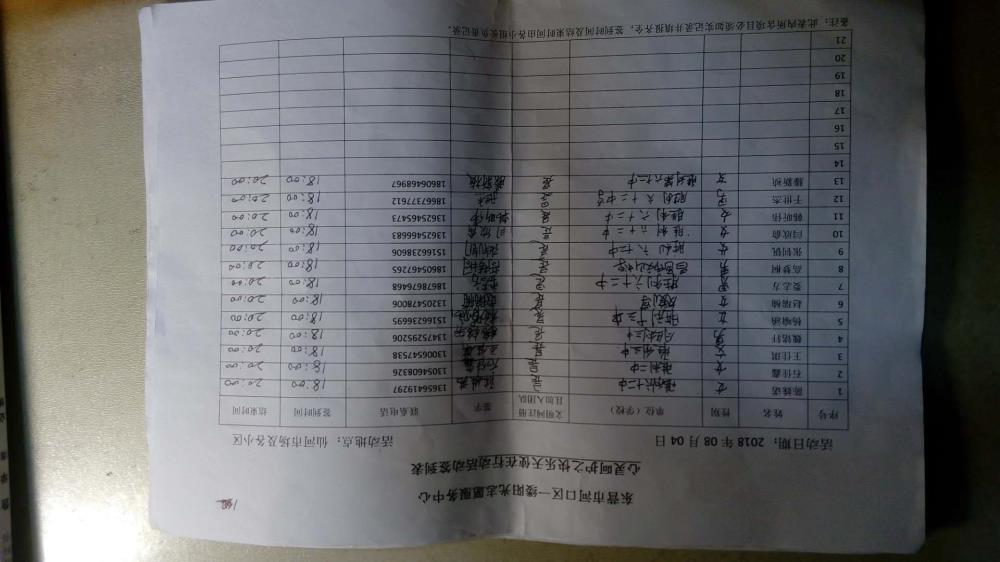 东营市河口区一缕阳光志愿服务中心
心灵呵护之快乐天使在行动活动签到表
活动日期：2018 年 08 月 04 日 活动地点：仙河市场及各小区
序号 姓名 性别 单位（学校） 文明网注册且加入团队 签字 联系电话 签到时间 结束时间
1 女 是 13656419297 18:00 20:00
2 石佳鑫 女 胜利二中 是 石佳鑫 13054608326 18:00 20:00
3 王佳琪 女 是 13006547538 18:00 20:00
4 魏铭轩 男 是 13475295206 18:00 20:00
5 杨喻涵 女 是 15166236695 18:00 20:00
6 赵瑞楠 女 是 13205478006 18:00 20:00
7 娄志方 男 胜利六十二中 是 18678676468 18:00 20:00
8 高梦桐 男 是 18605467265 18:00 20:00
9 张钊钒 女 胜利六十二中 是 15166238606 18:00 20:00
10 闫欣俞 女 胜利六十二中 是 闫欣俞 13625466683 18:00 20:00
11 韩昕伟 女 胜利六十二中 是 韩昕伟 13625465473 18:00 20:00
12 于世杰 男 胜利六十二中 是 18673377612 18:00 20:00
13 滕新祯 女 胜利第六十二中 是 滕新祯 18606468967 18:00 20:00
14
15
16
17
18
19
20
21
备注：此表内所含项目必须如实记录并填报齐全，签到时间及结束时间由各小组长负责记录。